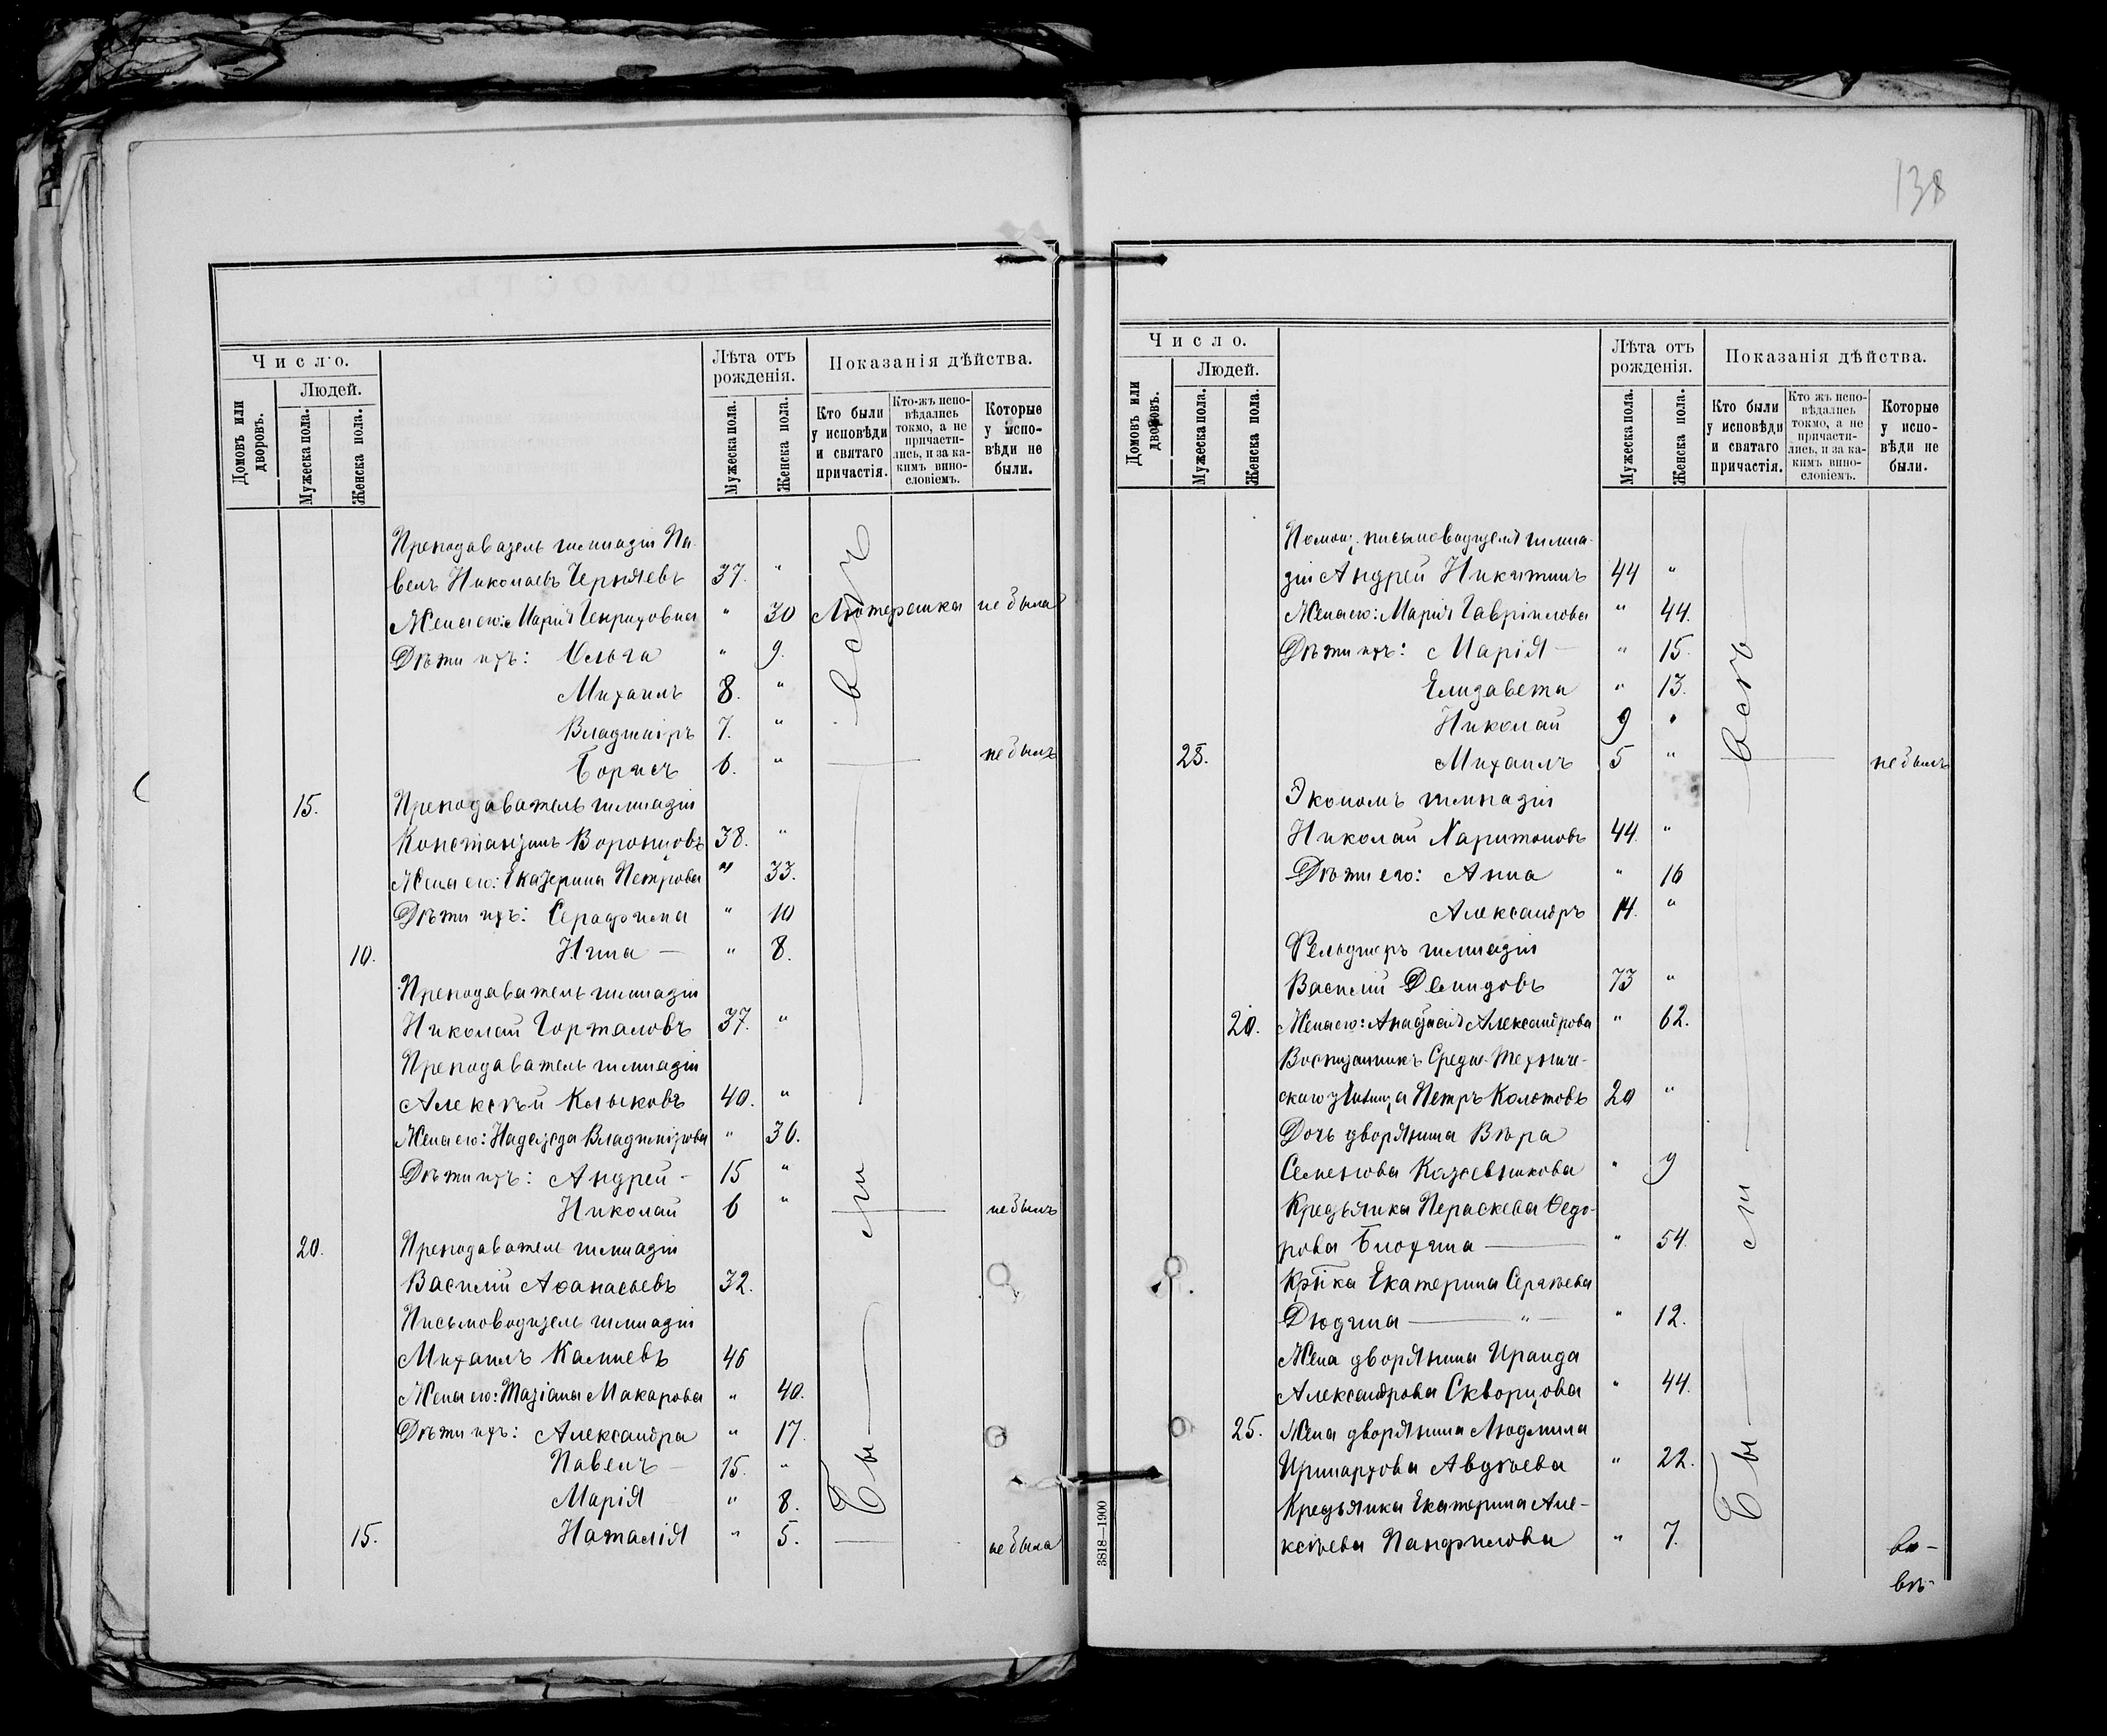 Число.
Людей.
Домовъ или дворовъ.
Мужеска пола.
Женска пола.
Лѣта отъ рожденія.
Мужеска пола.
Женска пола.
Показанія дѣйства.
Кто были у исповѣди и святаго причастія.
Кто-жъ исповѣдались токмо, а не причастились, и за какимъ винословіемъ.
Которые у исповѣди не были.
Преподаватель гимназіи Па-
велъ Николаевъ Черняевъ 37. "
Жена его: Марія Генриховна " 30 Лютеранка не была
Дѣти ихъ: Ольга " 9.
Михаилъ 8. "
Владиміръ 7. "
Борисъ 6. " не былъ
15. Преподаватель гимназіи
Константинъ Воронцовъ 38. "
Жена его: Екатерина Петрова " 33.
Дѣти ихъ: Серафима " 10
10. Нина — " 8.
Преподаватель гимназіи
Николай Горталовъ 37. "
Преподаватель гимназіи
Алексѣй Колыковъ 40. "
Жена его: Надежда Владимірова " 36.
Дѣти ихъ: Андрей - 15 "
Николай 6 " не былъ
20. Преподаватель гимназіи
Василій Аѳанасьевъ 32.
Письмоводитель гимназіи
Михаилъ Калиневъ 46
Жена его: Татіана Макарова " 40.
Дѣти ихъ: Александра " 17.
Павелъ — 15. "
Марія " 8.
15. Наталія " 5. не была
Бы — ли — всѣ
138
Число.
Людей.
Домовъ или дворовъ.
Мужеска пола.
Женска пола.
Лѣта отъ рожденія.
Мужеска пола.
Женска пола.
Показанія дѣйства.
Кто были у исповѣди и святаго причастія.
Кто жъ исповѣдались токмо, а не причастились, и за какимъ винословіемъ.
Которые у исповѣди не были.
Помощ. письмоводителя гимна-
зіи Андрей Никитинъ 44 "
Жена его: Марія Гавріилова " 44.
Дѣти ихъ: Марія — " 15.
Елизавета " 13.
Николай 9 "
25. Михаилъ 5 " не былъ
Экономъ гимназіи
Николай Харитоновъ 44. "
Дѣти его: Анна " 16
Александръ 14. "
Фельдшеръ гимназіи
Василій Демидовъ 73 "
20. Жена его: Александрова " 62.
Воспитанникъ Средне-Техниче-
скаго училища Петръ Колотовъ 20 "
Дочь дворянина Вѣра
Семенова " 9
Крестьянка Пераскева Ѳедо-
рова Биохина — " 54.
Кр҃нка Екатерина Сергѣева
Дюдина — " — " 12.
Жена дворянина Ираида
Александрова Скворцова " 44.
25. Жена дворянина Людмила
Иринархова Авдѣева " 22.
Крестьянка Екатерина Але-
ксѣева Панфилова " 7.
Бы — ли — всѣ
3818—1900